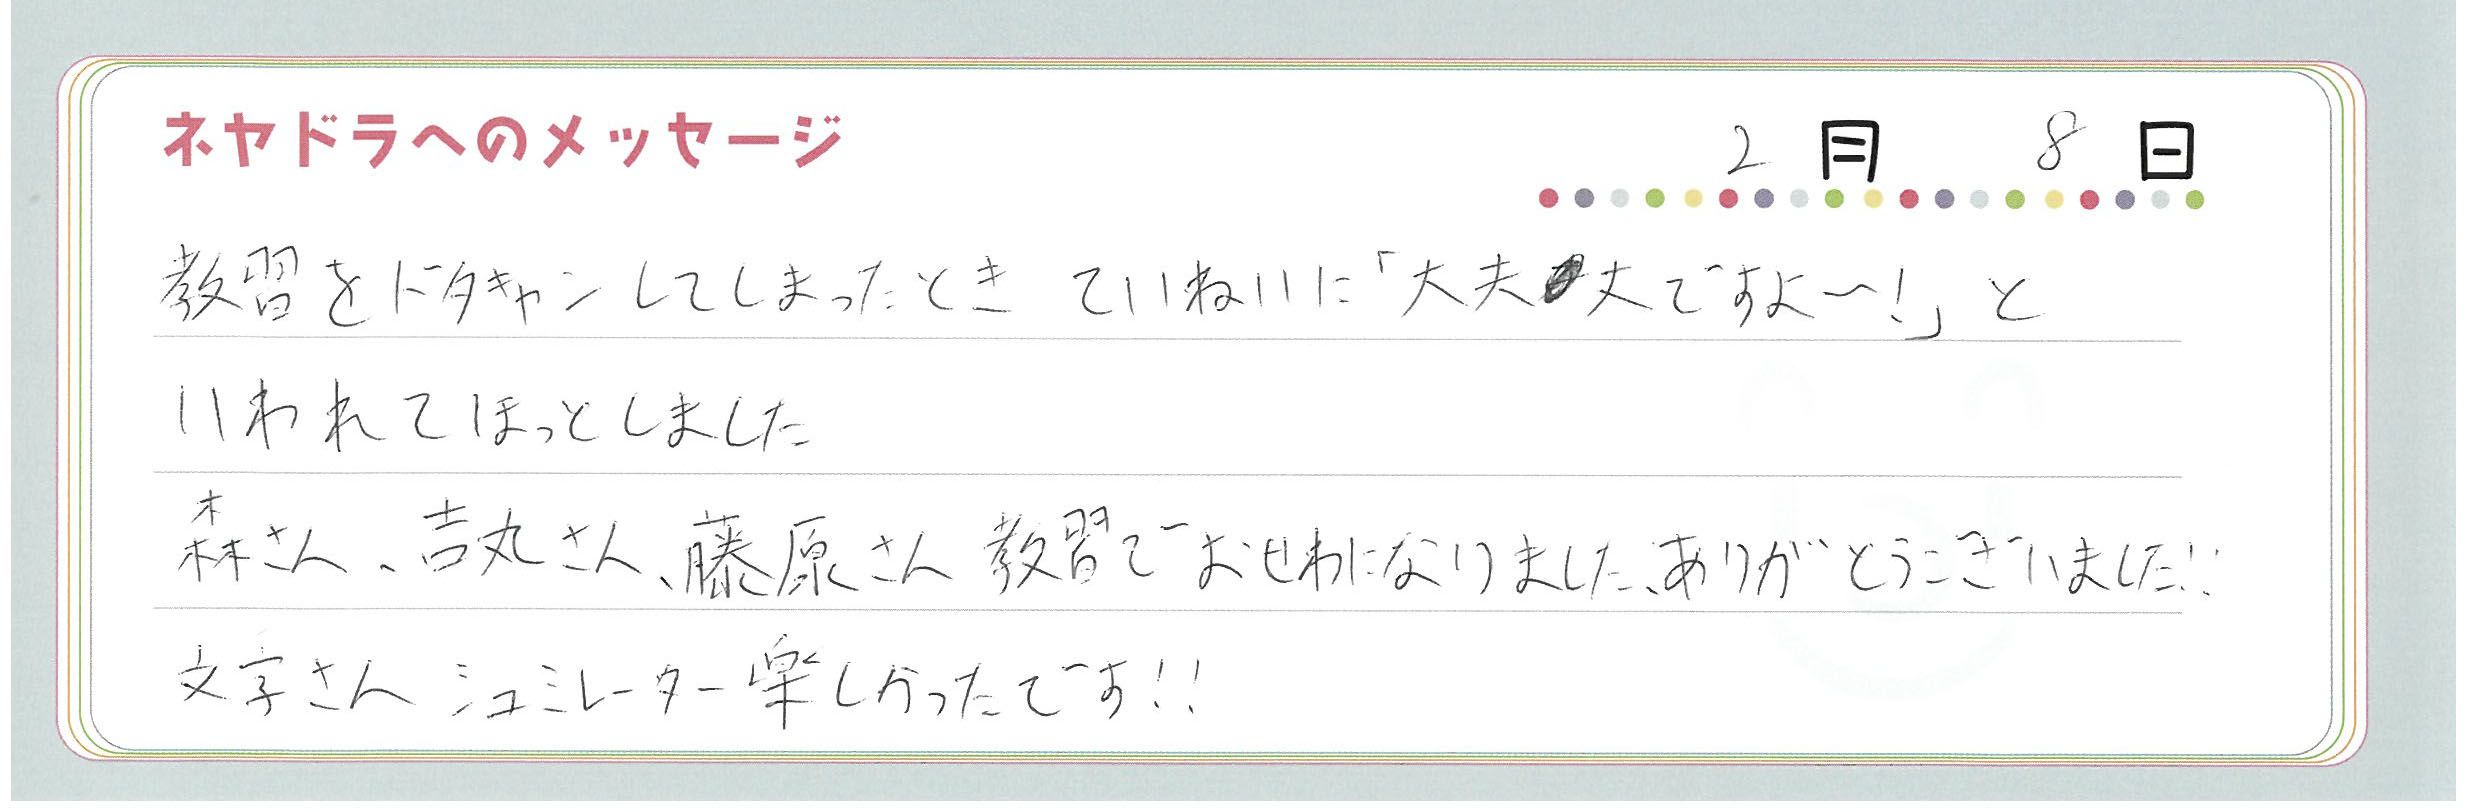 ネヤドラへのメッセージ
2月 8日
教習をドタキャンしてしまったとき ていねいに「大夫丈ですよ〜!」と
いわれてほっとしました
森さん、吉丸さん、藤原さん 教習でおせわになりました、ありがとうございました!!
文字さん シュミレーター楽しかったです!!